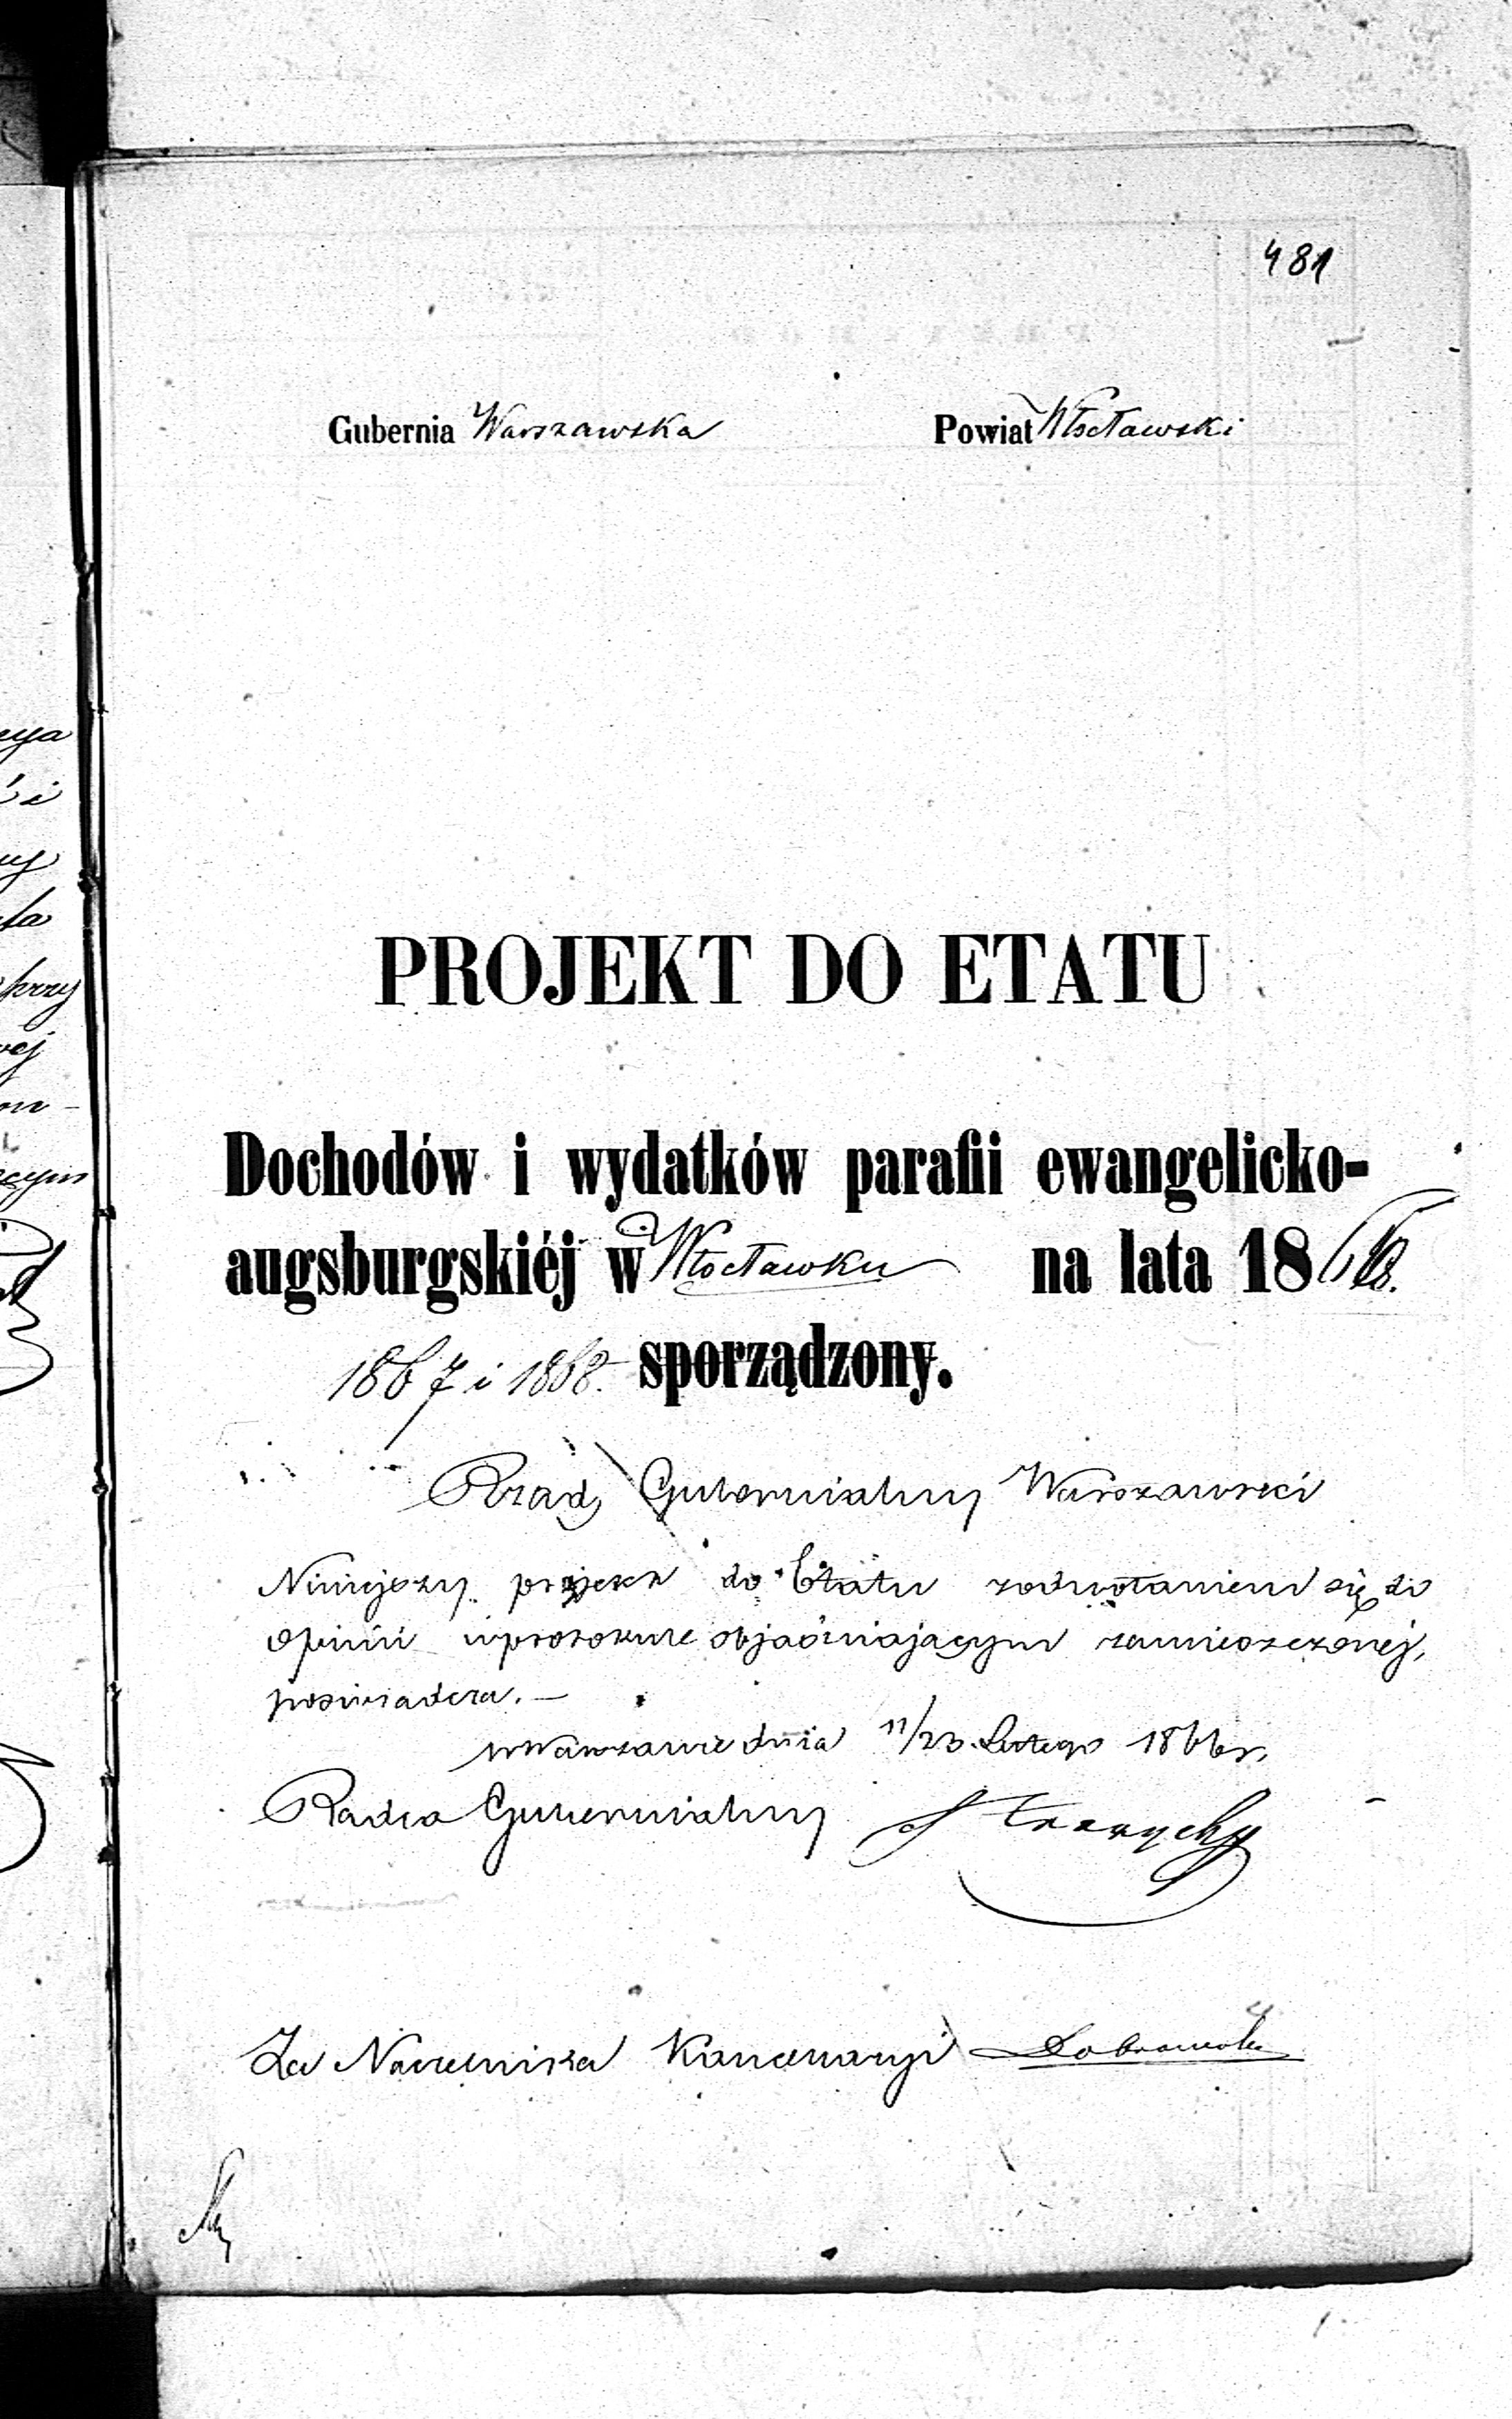 481
Gubernia Warszawska Powiat Włocławski
PROJEKT DO ETATU
Dochodów i wydatków parafii ewangelicko-
augsburgskiéj w Włocławku na lata 1866.
1867 i 1868. sporządzony.
Rząd Gubernialny Warszawski
Niniejszy projekt do Etatu z odwołaniem się do
opinii w protokule objaśniającym zamieszczonej,
poświadcza.—
w Warszawie dnia 11/23 Lutego 1866 r.
Radca Gubernialny
Za Naczelnika Kancelaryi